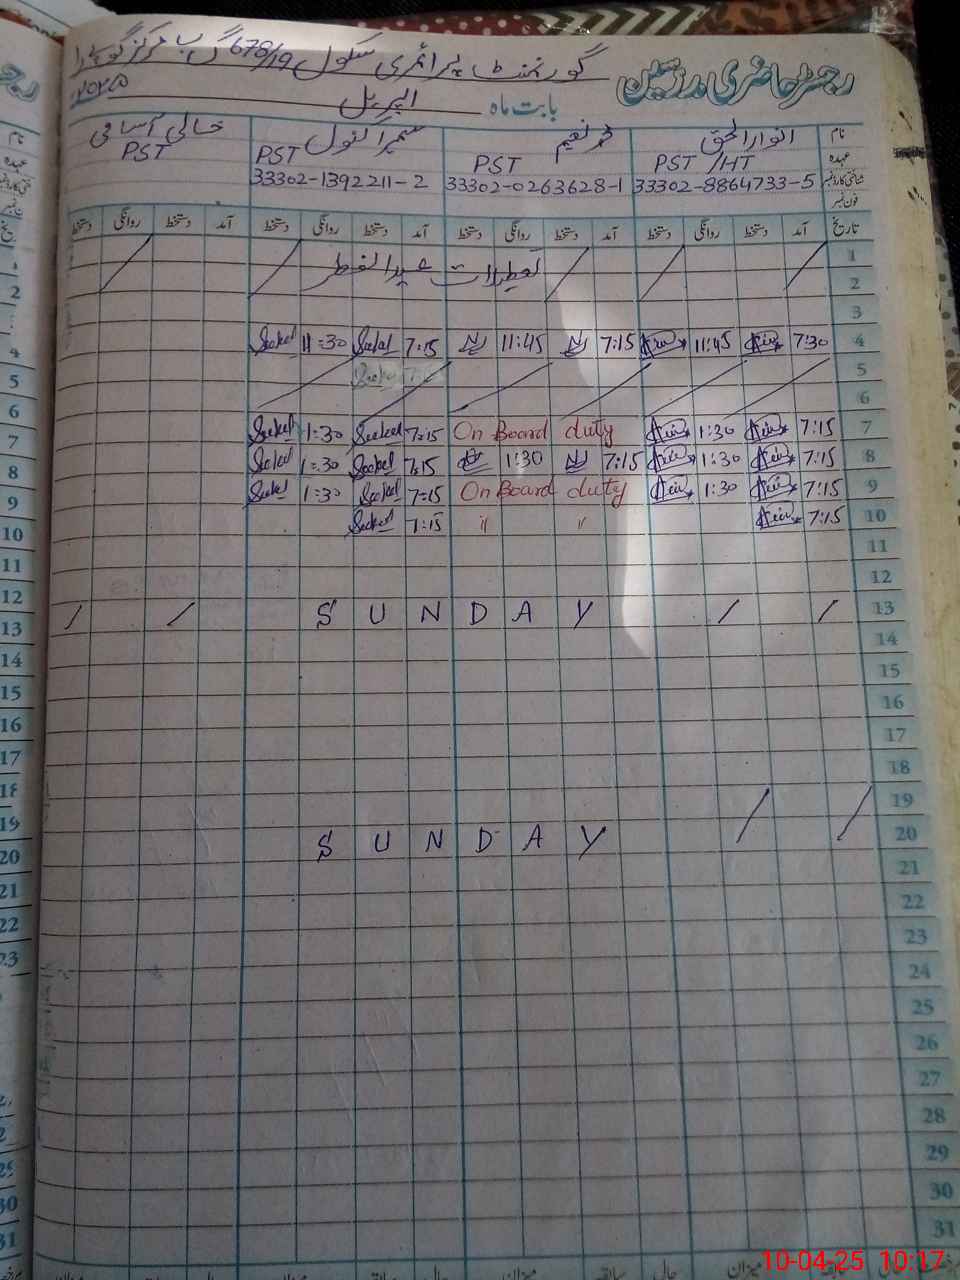 رجسٹر حاضری مدرسین گورنمنٹ پرائمری سکول 678/19 گ ب مرکز
بابت ماہ اپریل ۲۰۲۵
نام انوار الحق محمد نعیم سمیرا کنول خالی آسامی
عہدہ PST/HT PST PST PST
شناختی کارڈ نمبر 33302-8864733-5 33302-0263628-1 33302-1392211-2
فون نمبر
تاریخ آمد دستخط روانگی دستخط آمد دستخط روانگی دستخط آمد دستخط روانگی دستخط آمد دستخط روانگی دستخط
1
2 تعطیلات عید الفطر
3
4 7:30 11:45 7:15 11:45 7:15 11:30
5
6
7 7:15 1:30 On Board duty 7:15 1:30
8 7:15 1:30 7:15 1:30 7:15 1:30
9 7:15 1:30 On Board duty 7:15 1:30
10 7:15 〃 〃 7:15
11
12
13 S U N D A Y
14
15
16
17
18
19
20 S U N D A Y
21
22
23
24
25
26
27
28
29
30
31
میزان
10-04-25 10:17